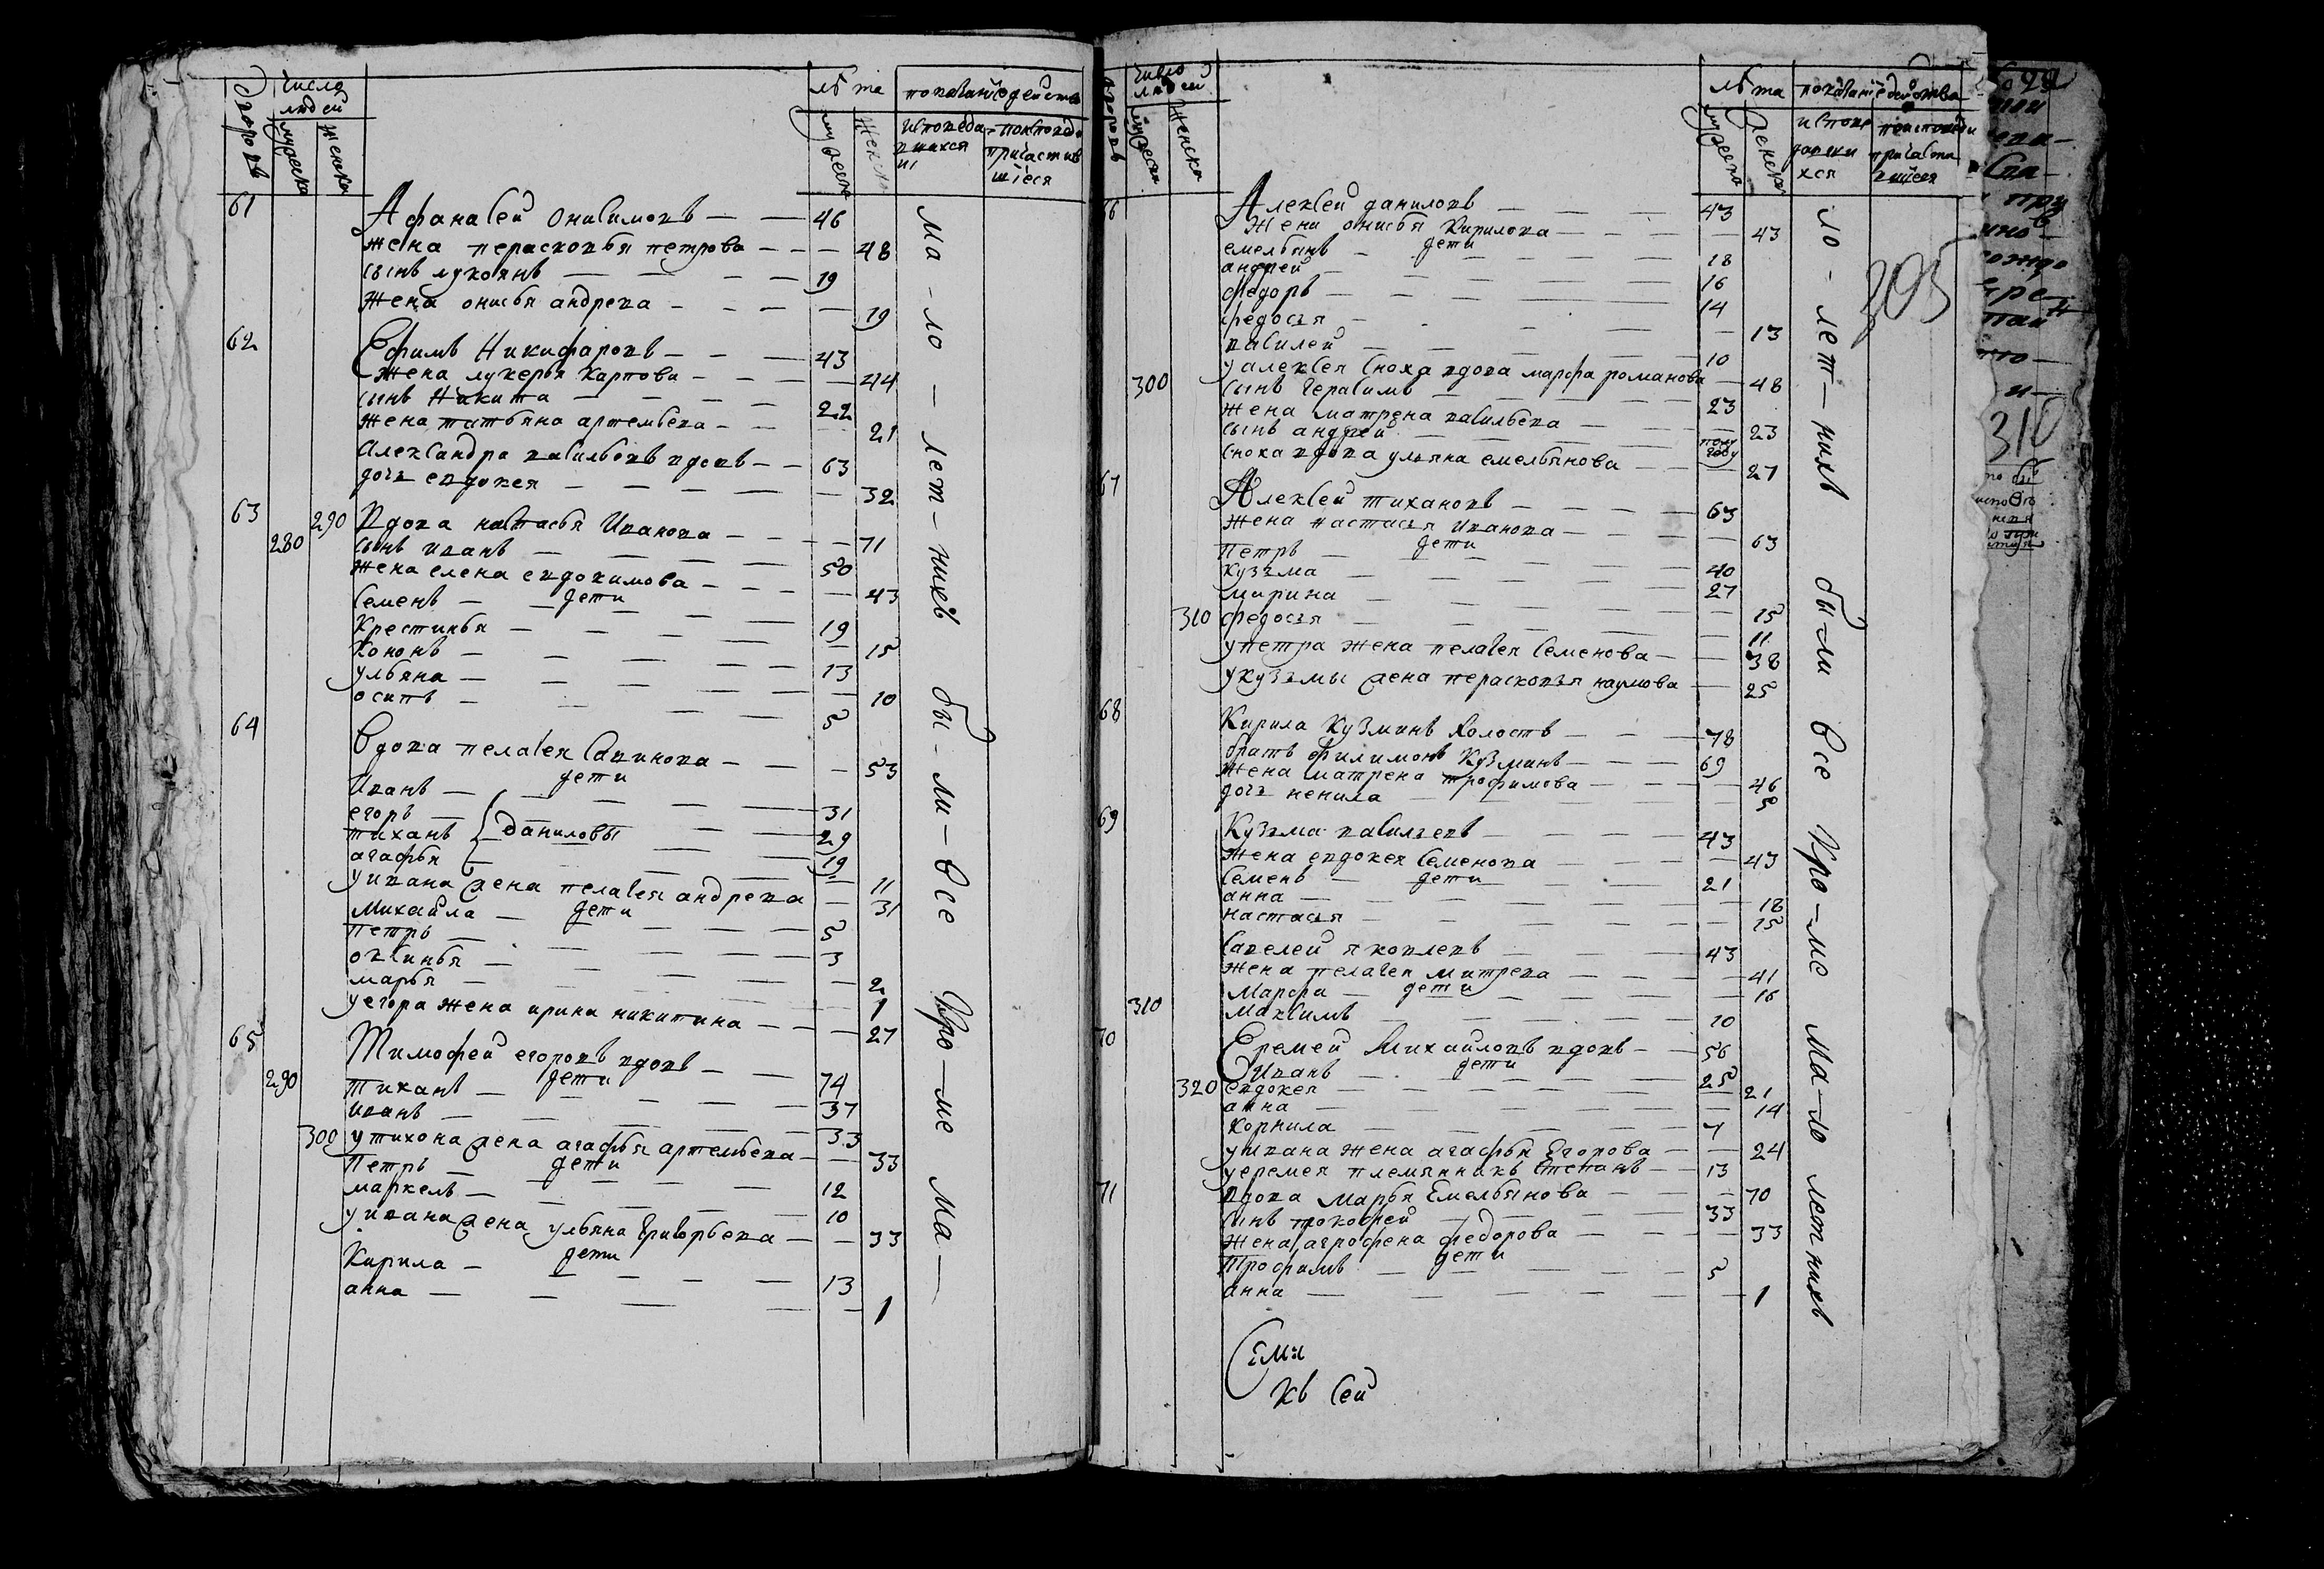 дворовъ
числа людей
мужеска
женска
лѣта
мужеска
женска
показание действа
исповедавшихся
по исповеди причастившиеся
61
Афанасей Онисимовъ — — 46
жена перасковья петрова — — — 48
сынъ лукоянъ — — — — 19
жена онисья андреева — — — — 19
62
Ефимъ Никифаровъ — — — 43
жена лукерья Карпова — — — — 44
сынъ Никита — — — — 22
жена татьяна артемьева — — 21
Александра васильевъ вдовъ — — 63
дочь евдокея — — — — — 32
63 290 Вдова настасья Иванова — — — — 71
280 сынъ иванъ — — — — 50
жена елена евдокимова — — — — 43
дети
Семенъ — — — — 19
Крестинья — — — — — 15
Кононъ — — — — — 13
ульяна — — — — — — 10
осипъ — — — — 5
64
Вдова пелагея Савинова — — — — 53
дети
Иванъ — — — — — 31
егоръ — — — — 29
тиханъ { даниловы — — 19
агафья — — — — — 11
у ивана жена пелагея андреева — 31
дети
Михайла — — — — — 5
петръ — — — — — 3
оксинья — — — — — 2
марья — — — — — 1
у егора жена ирина никитина — — — 27
65
Тимофей егоровъ вдовъ — — 74
дети
290 тиханъ — — — — — 37
иванъ — — — — — 33
300 у тихона жена агафья артемьева — — 33
дети
Петръ — — — — — 12
маркелъ — — — — — 10
у ивана жена ульяна Григорьева — — 33
дети
Кирила — — — — — 13
анна — — — — — 1
ма - ло - лет - нихъ бы - ли - все кро - ме ма -
дворовъ
число людей
мужеска
женска
лѣта
мужеска
женска
показание действа
исповедавшихся
по исповеди причастившиеся
305
66
Алексей даниловъ — — — — 43
жена онисья Кирилова — — — — 43
дети
емельянъ — — — — 18
андрей — — — — — 16
федоръ — — — — — 14
федосья — — — — — 13
василей — — — — — 10
у алексея сноха вдова марфа романова — 48
300 сынъ Герасимъ — — — — 23
жена матрена васильева — — — — 23
сынъ андрей — — — — полу году
сноха вдова ульяна емельянова — — — 27
67
Алексей тихановъ — — — — 63
жена настасья иванова — — — — 63
дети
петръ — — — — — 40
кузьма — — — — — 27
марина — — — — — 15
310 федосья — — — — — 11
у петра жена пелагея Семенова — — 38
у кузьмы жена перасковья наумова — 25
68
Кирила Кузминъ холостъ — — — 78
братъ филимонъ Кузминъ — — — 69
жена матрена трофимова — — — — 46
дочь ненила — — — — 5
69
Кузьма васильевъ — — — — 43
жена евдокея Семенова — — — — 43
дети
Семенъ — — — — 21
анна — — — — — 18
настасья — — — — — 15
Савелей яковлевъ — — — — 43
жена пелагея митрева — — — 41
дети
Марфа — — — — — 16
310 Максимъ — — — — 10
70
Еремей Михайловъ вдовъ — — 56
дети
Иванъ — — — — 25
320 евдокея — — — — — 21
анна — — — — — 14
Корнила — — — — 7
у ивана жена агафья Егорова — — 24
у еремея племянникъ Степанъ — — 13
71
вдова марья Емельянова — — — 70
сынъ прокофей — — — — 33
жена агрофена федорова — — — — 33
дети
Трофимъ — — — — — 5
анна — — — — — 1
ло - лет - нихъ бы-ли все кро-ме ма-ло летнихъ
Сими
къ сей
310